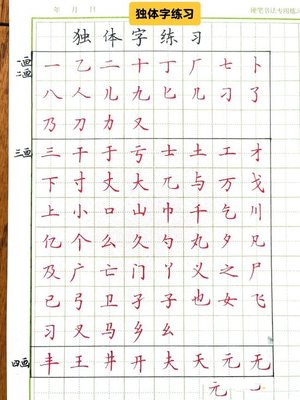 独体字练习
年 月 日
硬笔书法专用纸
独体字练习
一画
二画
一乙二十丁厂七卜
八人儿九匕几刁了
乃刀力又
三画
三干于亏士土工才
下寸丈大兀与万戈
上小口山巾千乞川
亿个么久勺丸夕凡
及广亡门丫义之尸
已弓卫孑子也女飞
习叉马乡幺
四画
丰王井开夫天元无
元